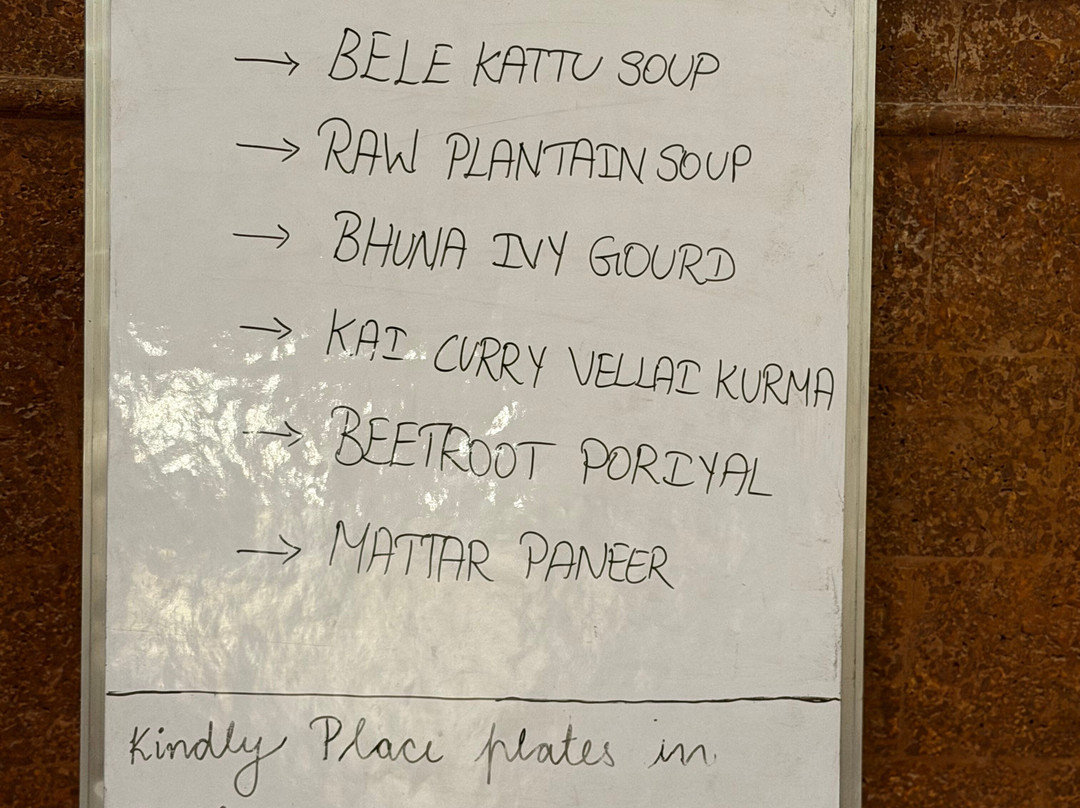 → BELE KATTU SOUP
→ RAW PLANTAIN SOUP
→ BHUNA IVY GOURD
→ KAI CURRY VELLAI KURMA
→ BEETROOT PORIYAL
→ MATTAR PANEER
Kindly Place plates in